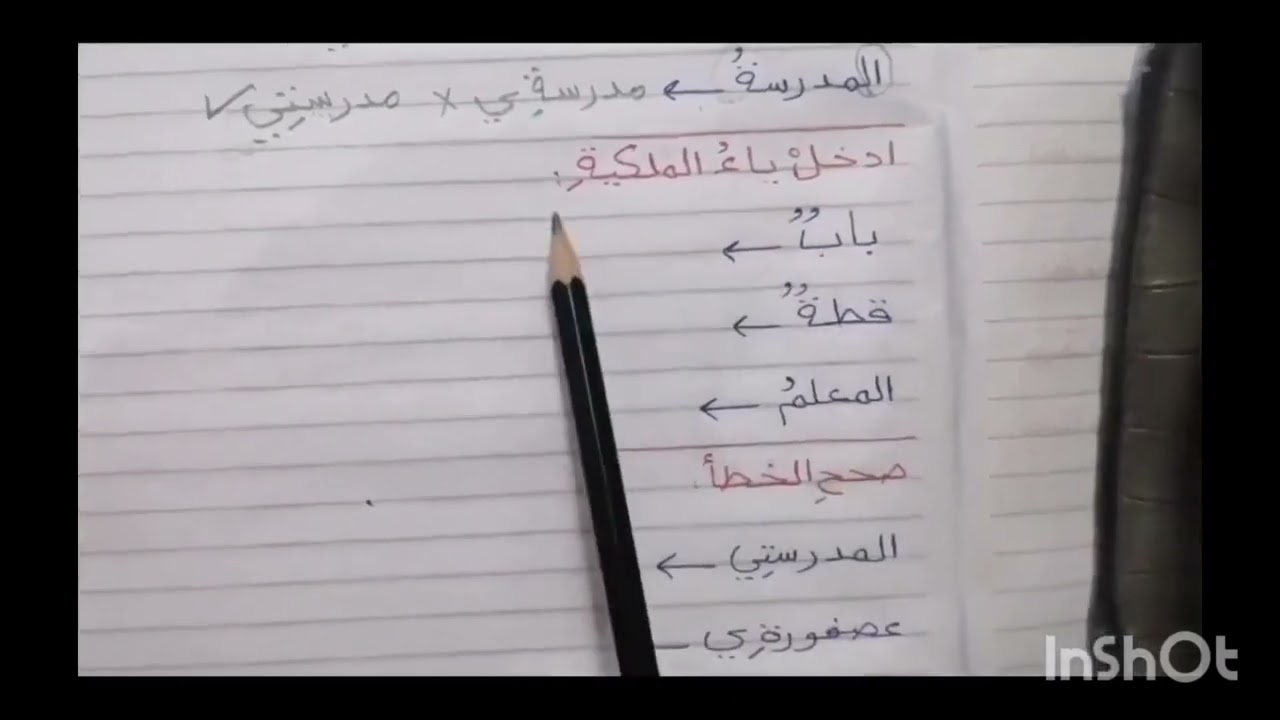 المدرسةُ ← مدرسةِي × مدرستِي ✓
ادخلْ ياءُ الملكيةِ:
بابٌ ←
قطةٌ ←
المعلمُ ←
صححِ الخطأ.
المدرستِي ←
عصفورةِي
InShOt